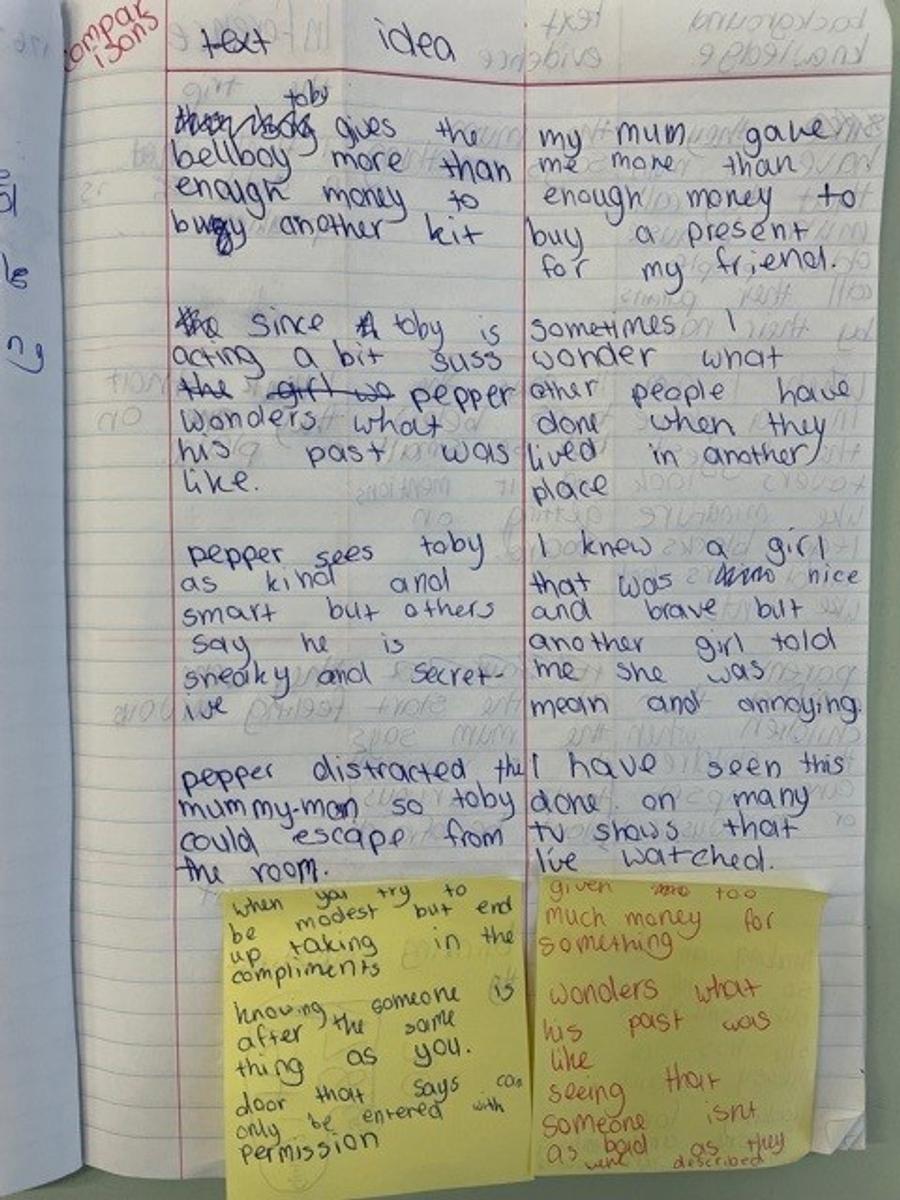 compar
isons
text
idea
toby
gives the
bellboy more than
enough money to
buy another kit
since toby is
acting a bit suss
the girl we pepper
wonders what
his past was
like.
pepper sees toby
as kind and
smart but others
say he is
sneaky and secret-
ive
pepper distracted the
mummy-man so toby
could escape from
the room.
my mum gave
me more than
enough money to
buy a present
for my friend.
sometimes I
wonder what
other people have
done when they
lived in another
place
I knew a girl
that was nice
and brave but
another girl told
me she was
mean and annoying.
I have seen this
done on many
tv shows that
I've watched.
when you try to
be modest but end
up taking in the
compliments
knowing someone is
after the same
thing as you.
door that says can
only be entered with
permission
given too
much money for
something
wonders what
his past was
like
seeing that
someone isnt
as bad as they
were described